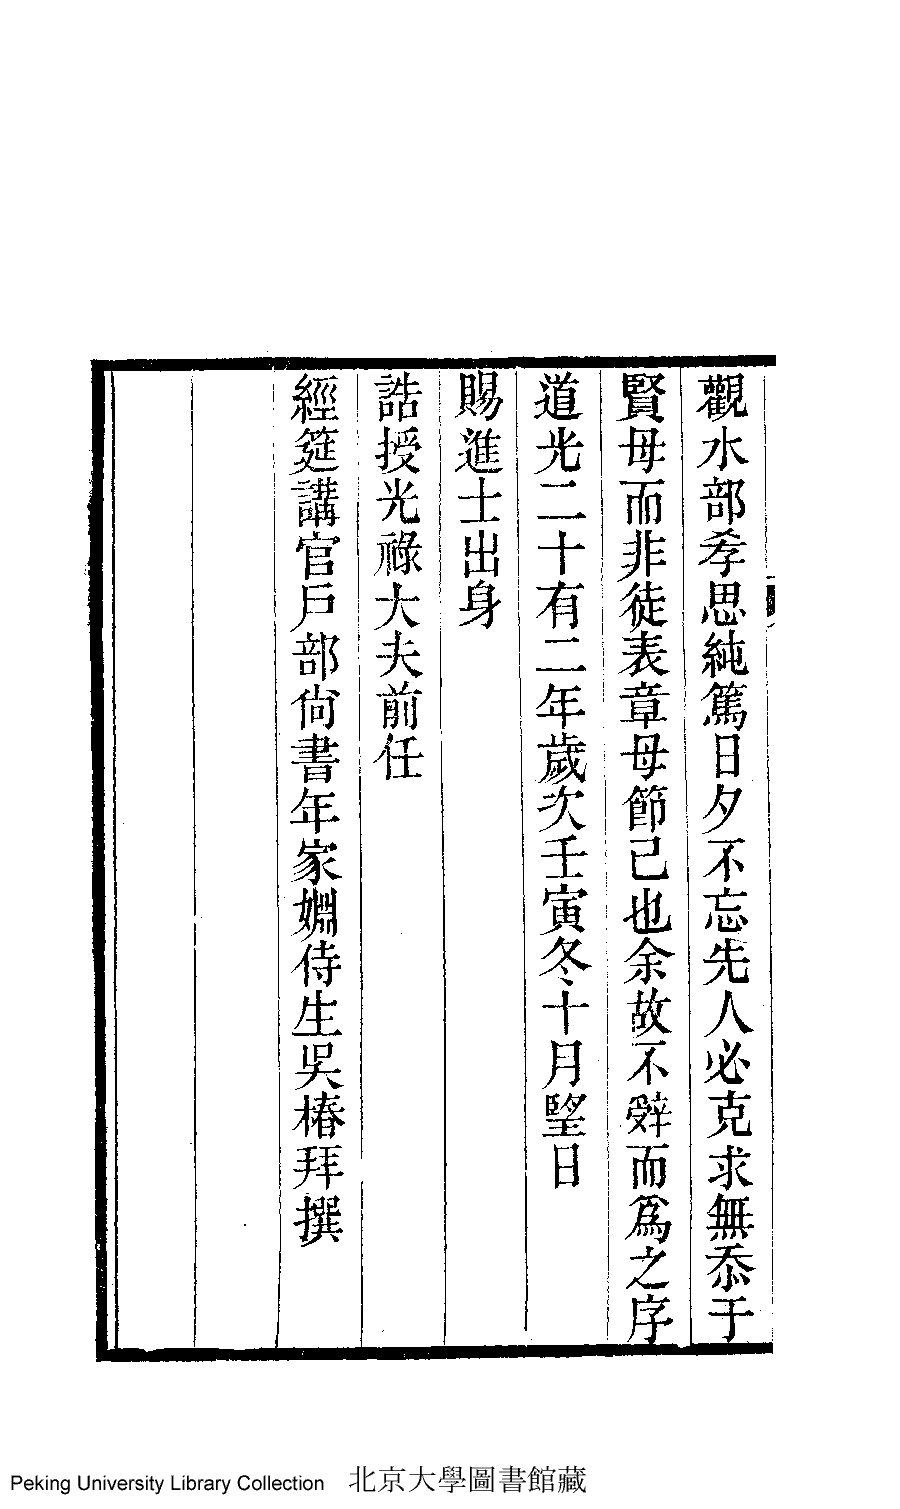 觀水部孝思純篤日夕不忘先人必克求無忝于
賢母而非徒表章母節己也余故不辤而爲之序
道光二十有二年歲次壬寅冬十月朢日
賜進士出身
誥授光祿大夫前任
經筵講官戶部尙書年家婣侍生吳椿拜撰
Peking University Library Collection 北京大學圖書館藏